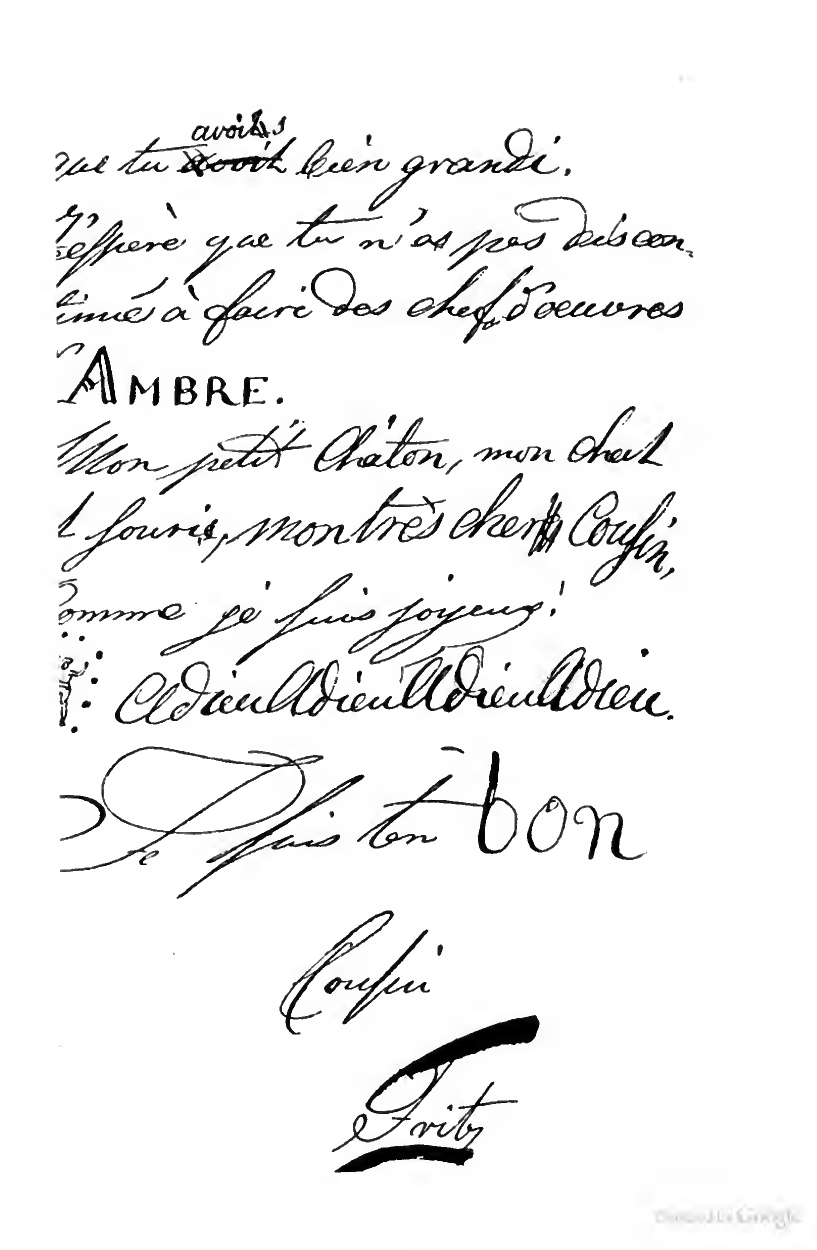 que tu avoits avoit bien grandi.
J'
espere que tu n'as pas discon-
tinué à faire des chef d'oeuvres
d'AMBRE.
Mon petit Châton, mon chat
souris, mon très cher Cousin,
Comme je suis joyeux!
Adieu Adieu Adieu Adieu.
Je suis ton bon
Cousin
Fritz
Google